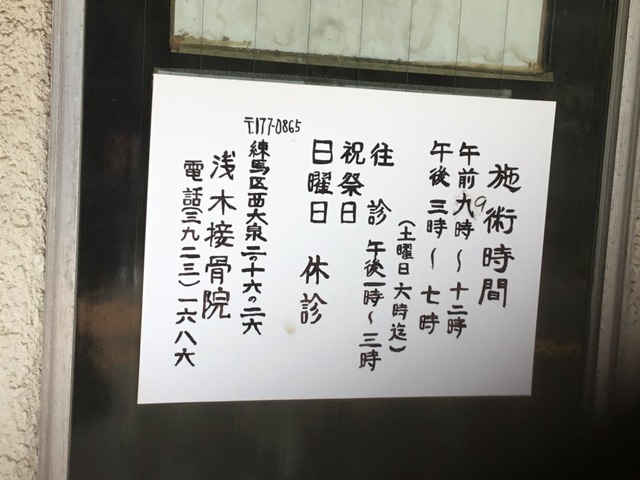 施術時間
午前九9時〜十二時
午後三時〜七時
(土曜日六時迄)
往診 午後一時〜三時
祝祭日
日曜日 休診
〒177-0865
練馬区西大泉二の十六の二六
浅木接骨院
電話(三九二三)一六八六